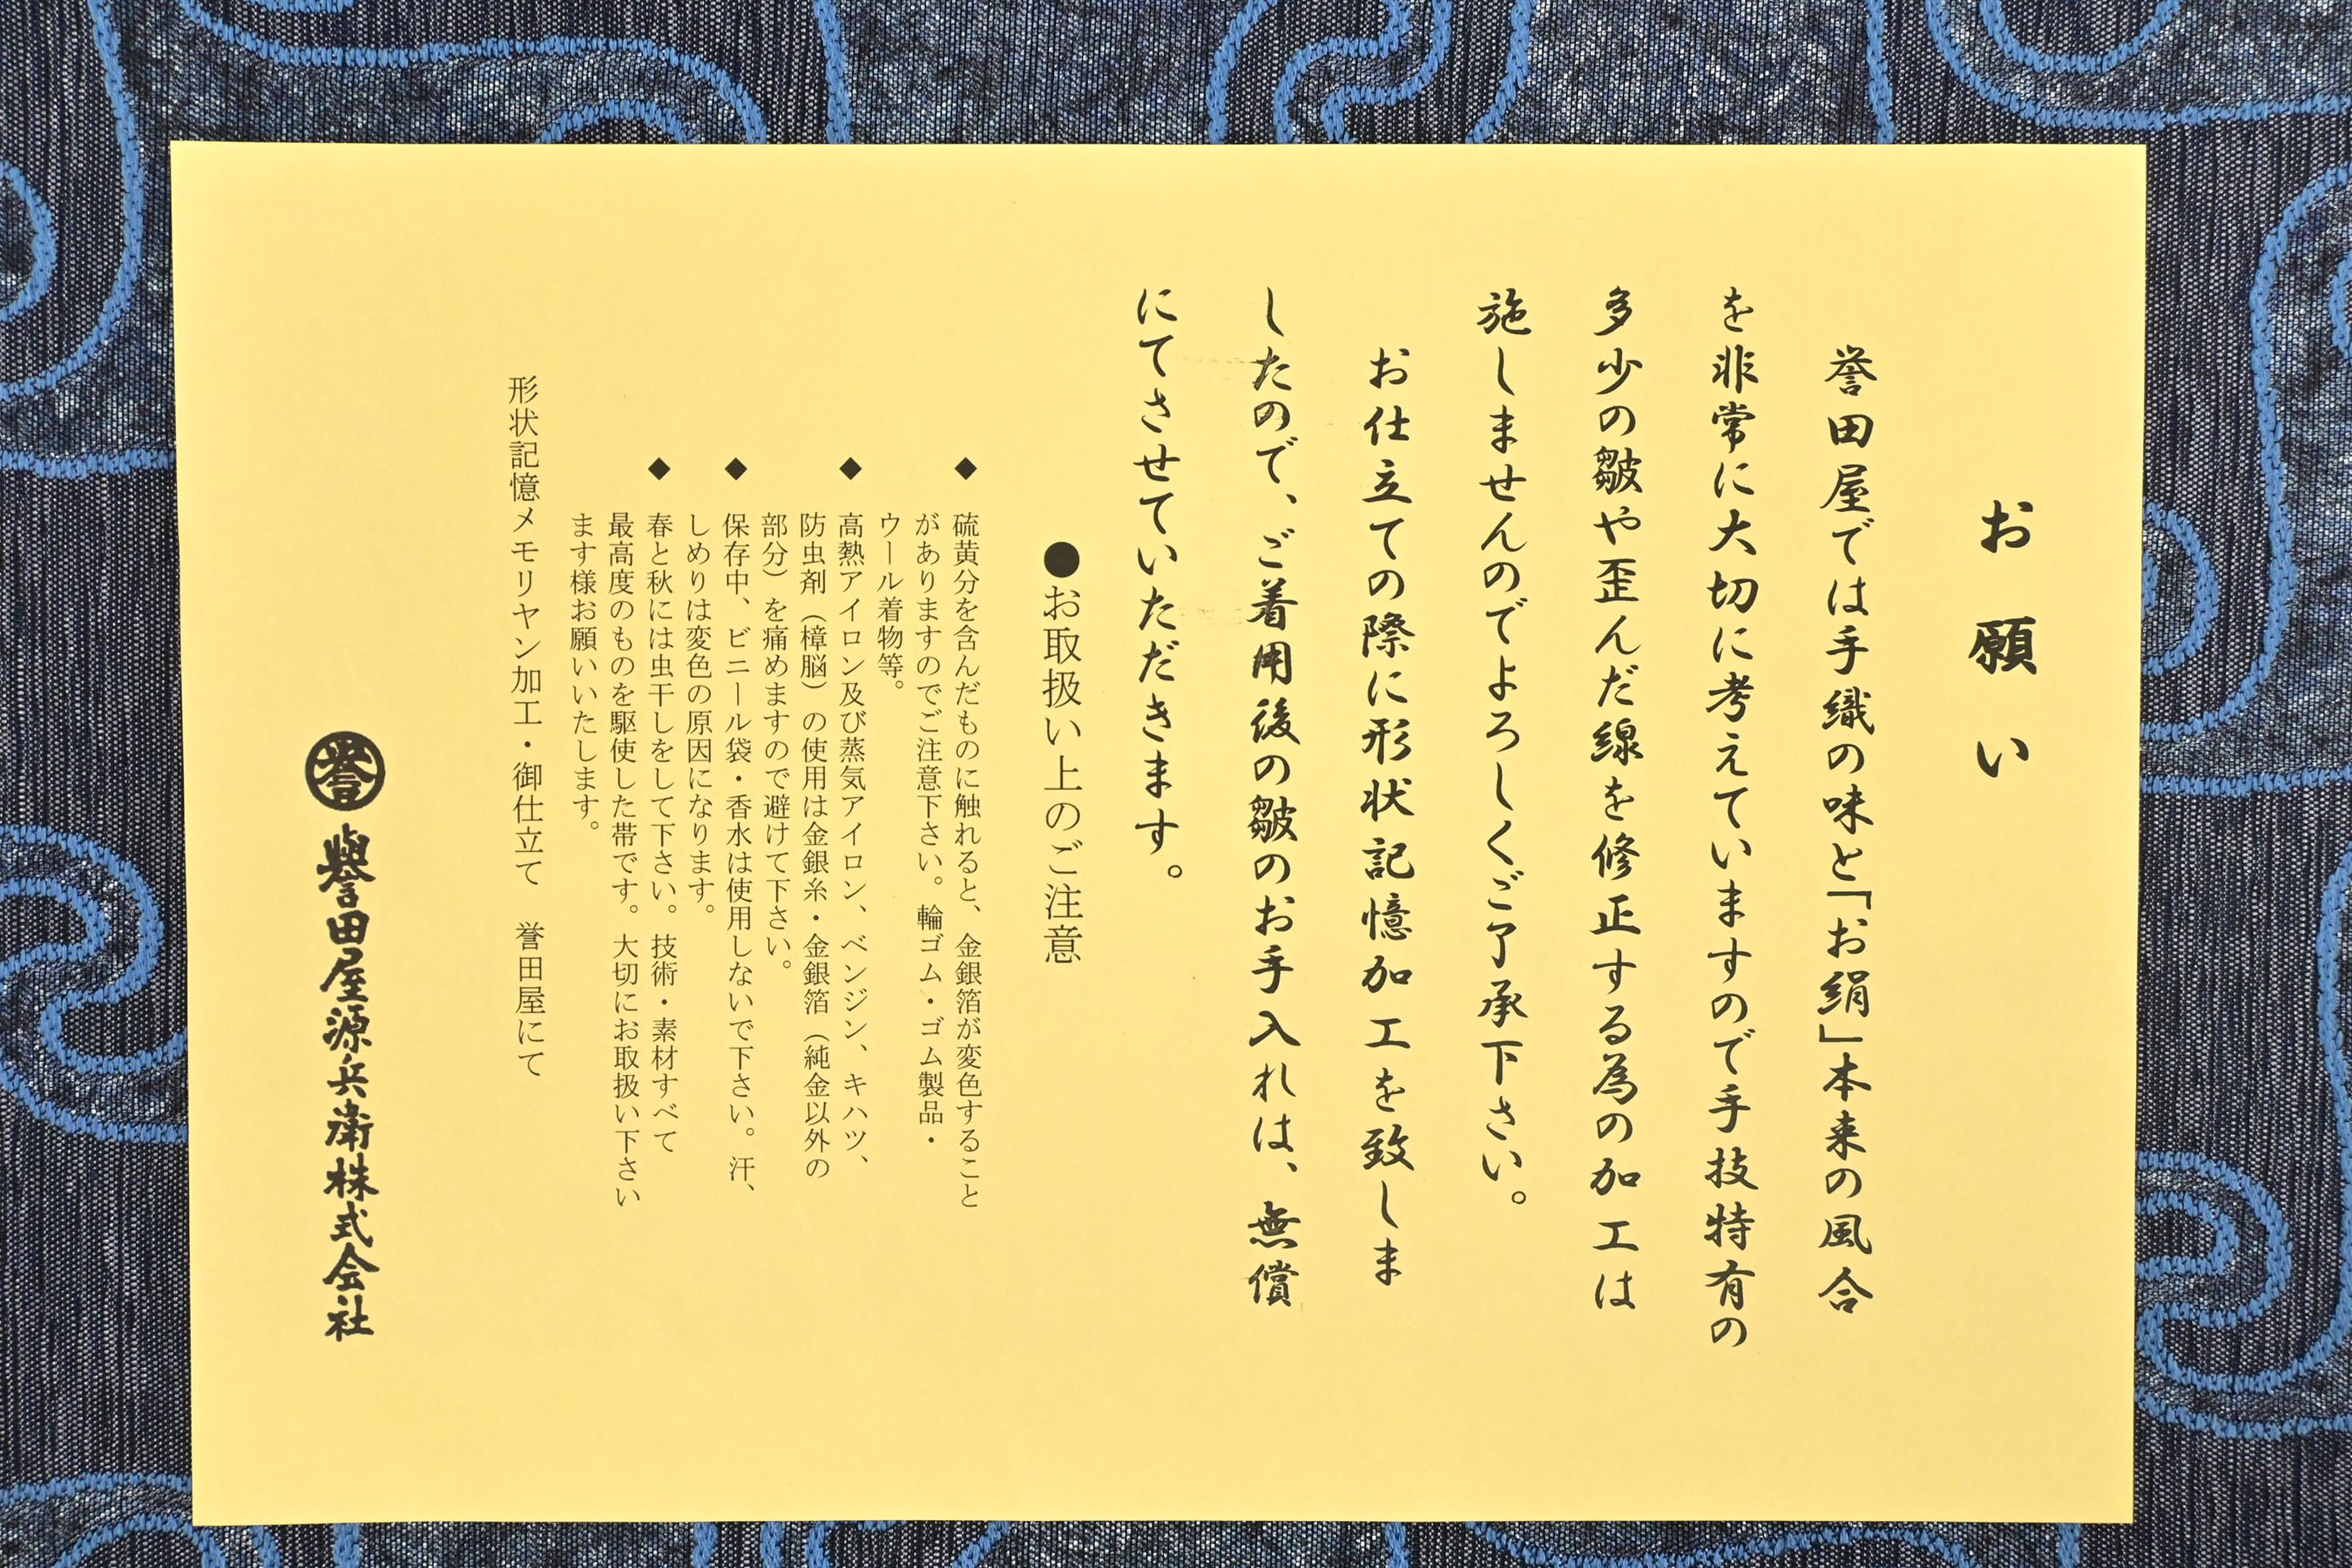 お願い
誉田屋では手織の味と「お絹」本来の風合
を非常に大切に考えていますので手技特有の
多少の皺や歪んだ線を修正する為の加工は
施しませんのでよろしくご了承下さい。
お仕立ての際に形状記憶加工を致しま
したので、ご着用後の皺のお手入れは、無償
にてさせていただきます。
●お取扱い上のご注意
◆硫黄分を含んだものに触れると、金銀箔が変色すること
がありますのでご注意下さい。輪ゴム・ゴム製品・
ウール着物等。
◆高熱アイロン及び蒸気アイロン、ベンジン、キハツ、
防虫剤（樟脳）の使用は金銀糸・金銀箔（純金以外の
部分）を痛めますので避けて下さい。
◆保存中、ビニール袋・香水は使用しないで下さい。汗、
しめりは変色の原因になります。
◆春と秋には虫干しをして下さい。技術・素材すべて
最高度のものを駆使した帯です。大切にお取扱い下さい
ます様お願いいたします。
形状記憶メモリヤン加工・御仕立て　誉田屋にて
誉 譽田屋源兵衛株式会社